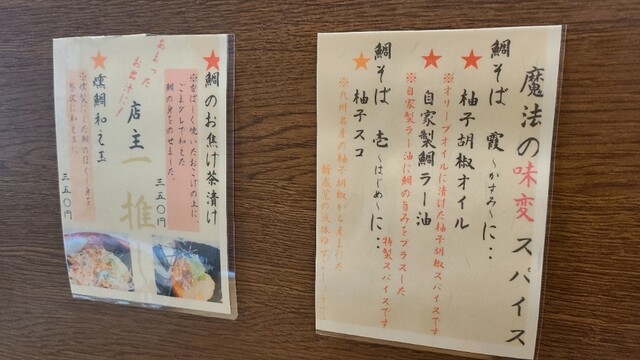 魔法の味変スパイス
鯛そば 霞～かすみ～に‥
★柚子胡椒オイル
※オリーブオイルに漬けた柚子胡椒スパイスです
★自家製鯛ラー油
※自家製ラー油に鯛の旨みをプラスした
特製スパイスです
鯛そば 壱～はじめ～に‥
★柚子スコ
※九州名産の柚子胡椒から産まれた
新感覚の液体ゆず
★鯛のお焦げ茶漬け
※香ばしく焼いたおこげの上に、
ごまダレで和えた
鯛の身をのせました。
三五〇円
店主一推し
あまった
お出汁に!
★燻鯛和え玉
三五〇円